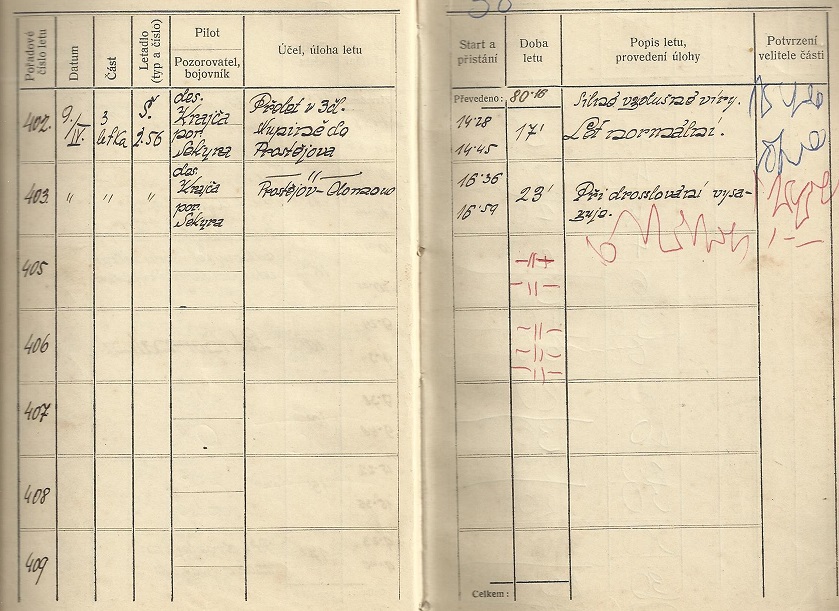 Pořadové číslo letu
Datum
Část
Letadlo (typ a číslo)
Pilot
Pozorovatel, bojovník
Účel, úloha letu
402.
9./IV.
3 letka
Š. 2.56
des. Krajča
por. Sekyra
Přelet v 3čl.
Prostějova
403.
"
"
"
des. Krajča
por. Sekyra
— " —
Prostějov – Olomouc
405
406
407
408
409
Start a přistání
Doba letu
Popis letu, provedení úlohy
Potvrzení velitele části
Převedeno:
80·18
14·28
14·45
17'
Silné vzdušné víry.
Let normální.
16·36
16·59
23'
Při drosslování vysa-
zuje.
Celkem: